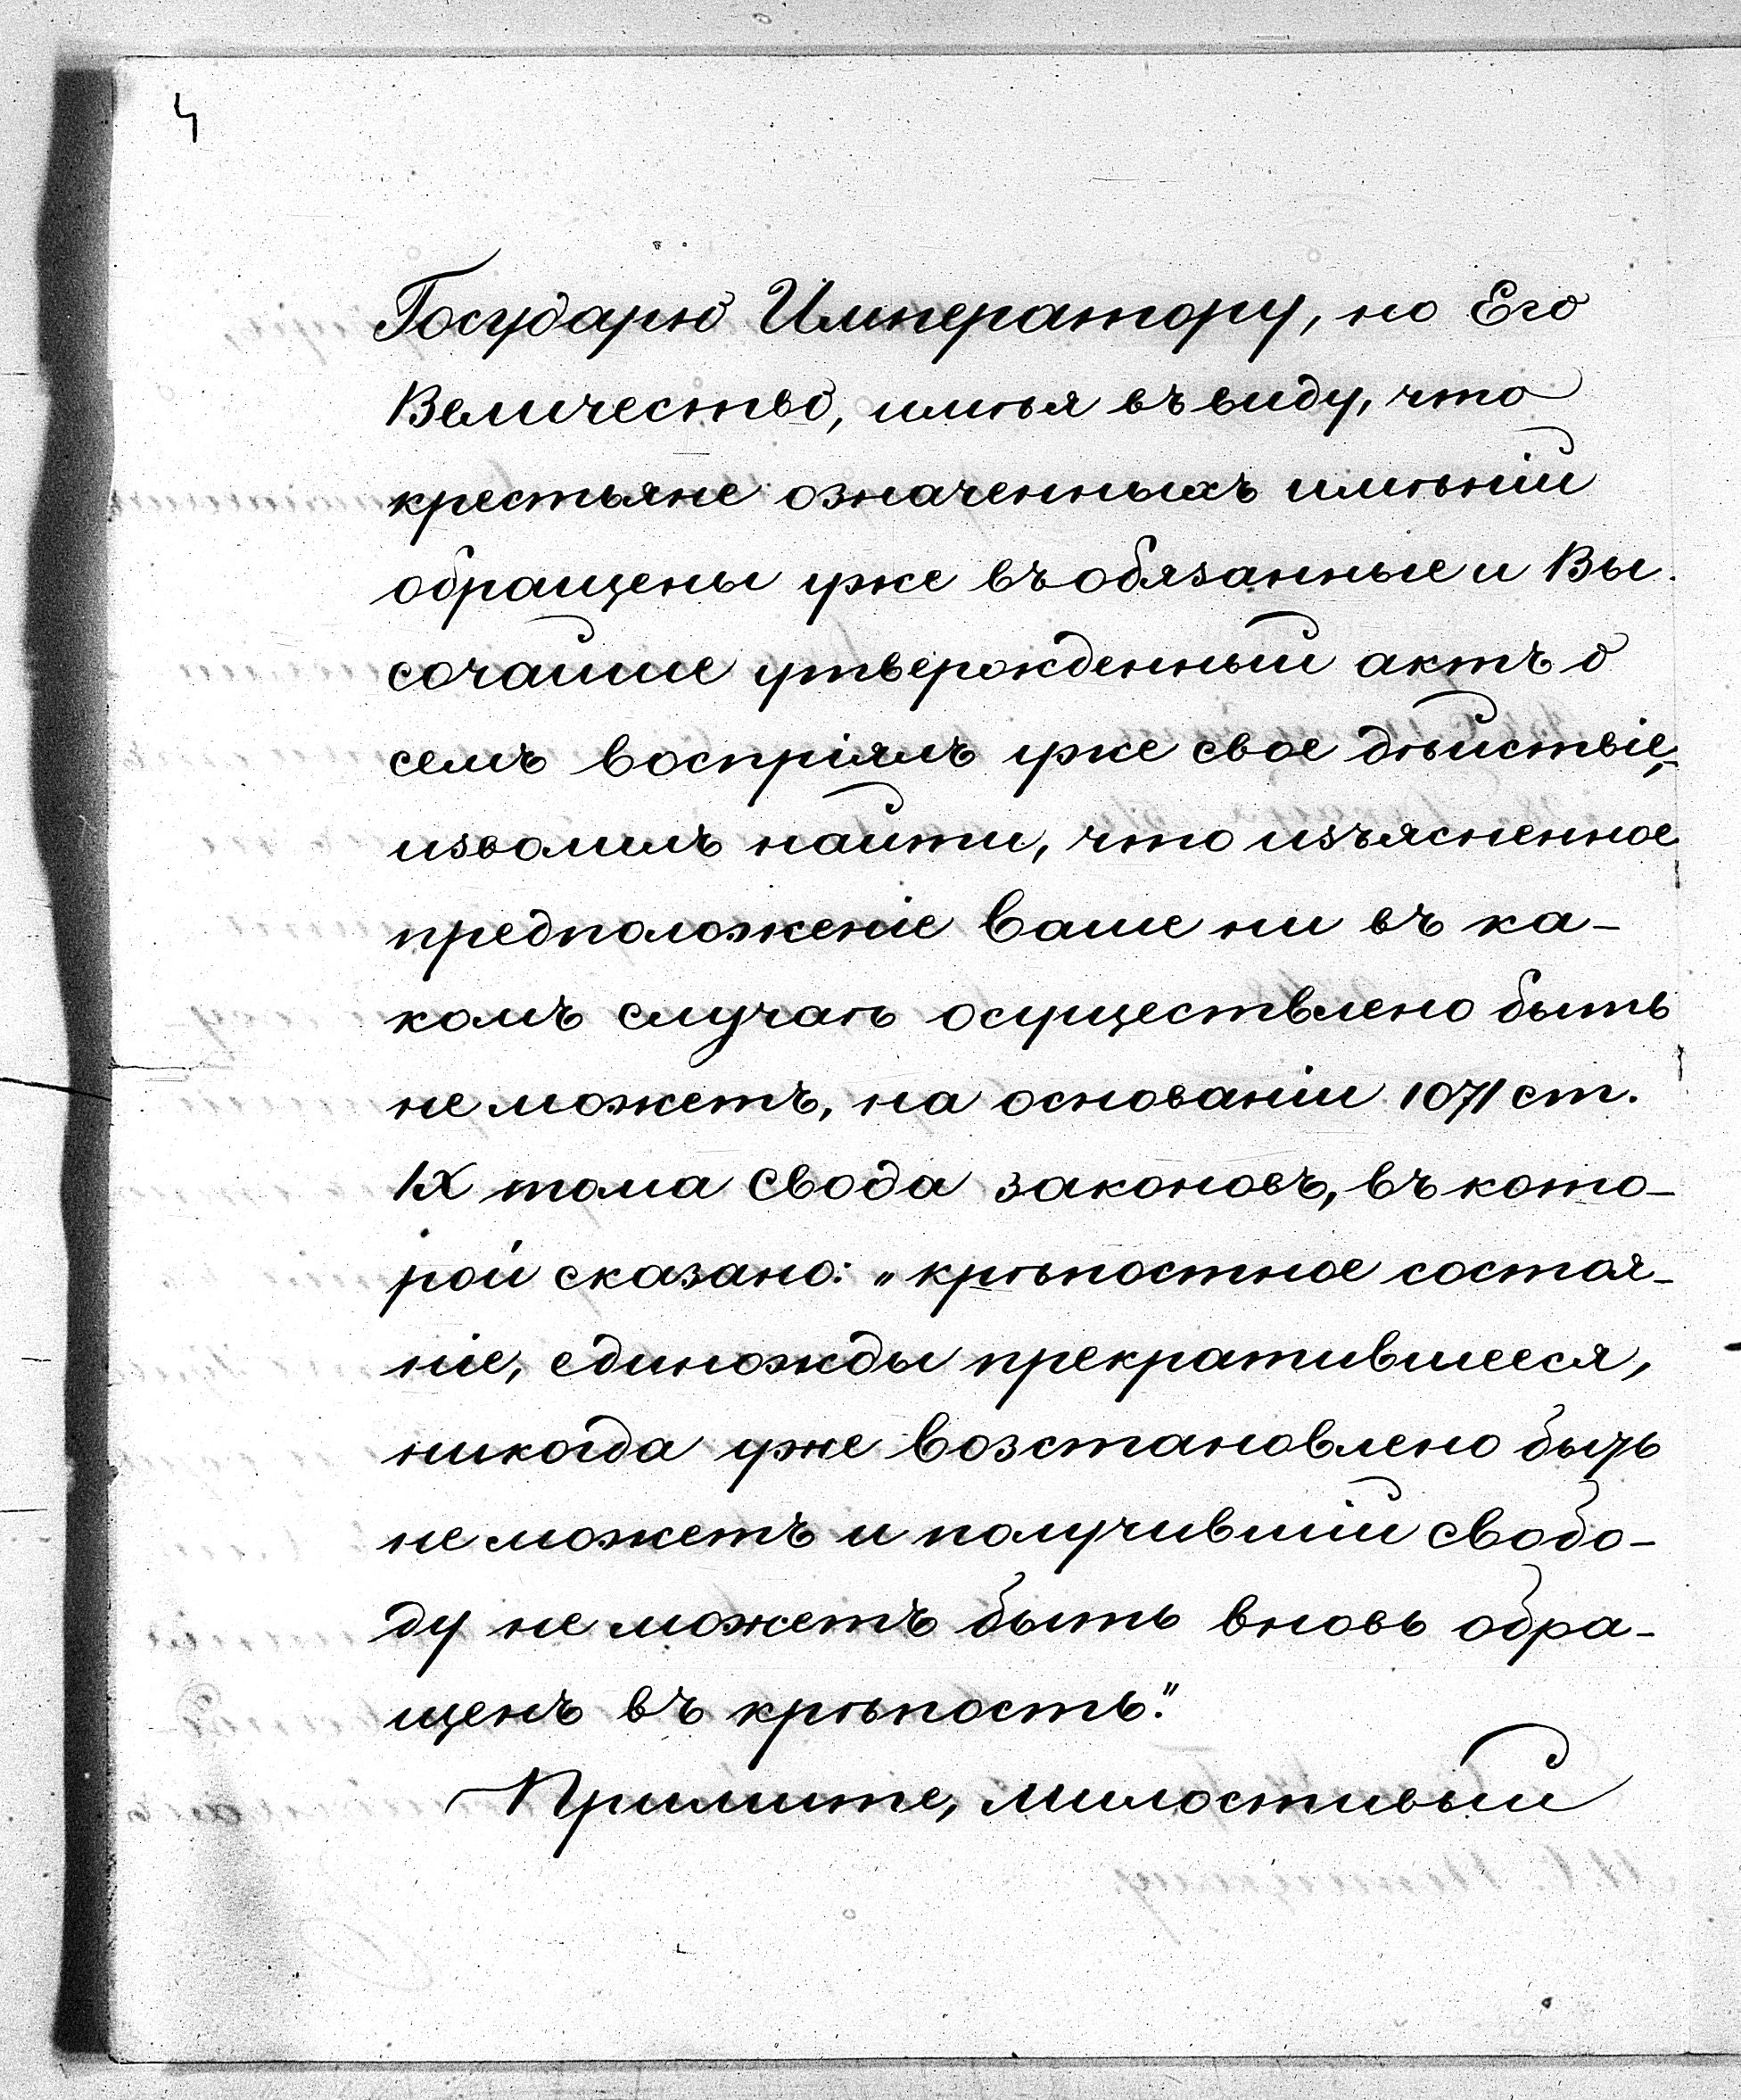 4
Государю Императору, но Его
Величество, имѣя въ виду, что
крестьяне означенныхъ имѣній
обращены уже въ обязанные и Вы.
сочайше утвержденный актъ о
семъ воспріялъ уже свое дѣйствіе,
изволилъ найти, что изъясненное
предположеніе Ваше ни въ ка-
комъ случаѣ осуществлено быть
не можетъ, на основаніи 1071 ст.
IX тома Свода законовъ, въ кото-
рой сказано: „крѣпостное состоя-
ніе, единожды прекратившееся,
никогда уже возстановлено быть
не можетъ и получившій свобо-
ду не можетъ быть вновь обра-
щенъ въ крѣпость."
Примите, Милостивый